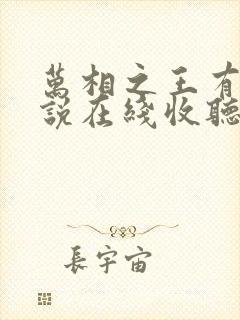 萬相之王有
說在綫收聽
長宇宙